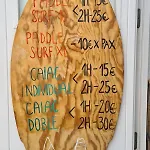 PADDLE 1H-15€
SURF 2H-25€
PADDLE -10€ X PAX
SURF XL
CAIAC 1H-15€
INDIVIDUAL 2H-25€
CAIAC 1H-20€
DOBLE 2H-30€